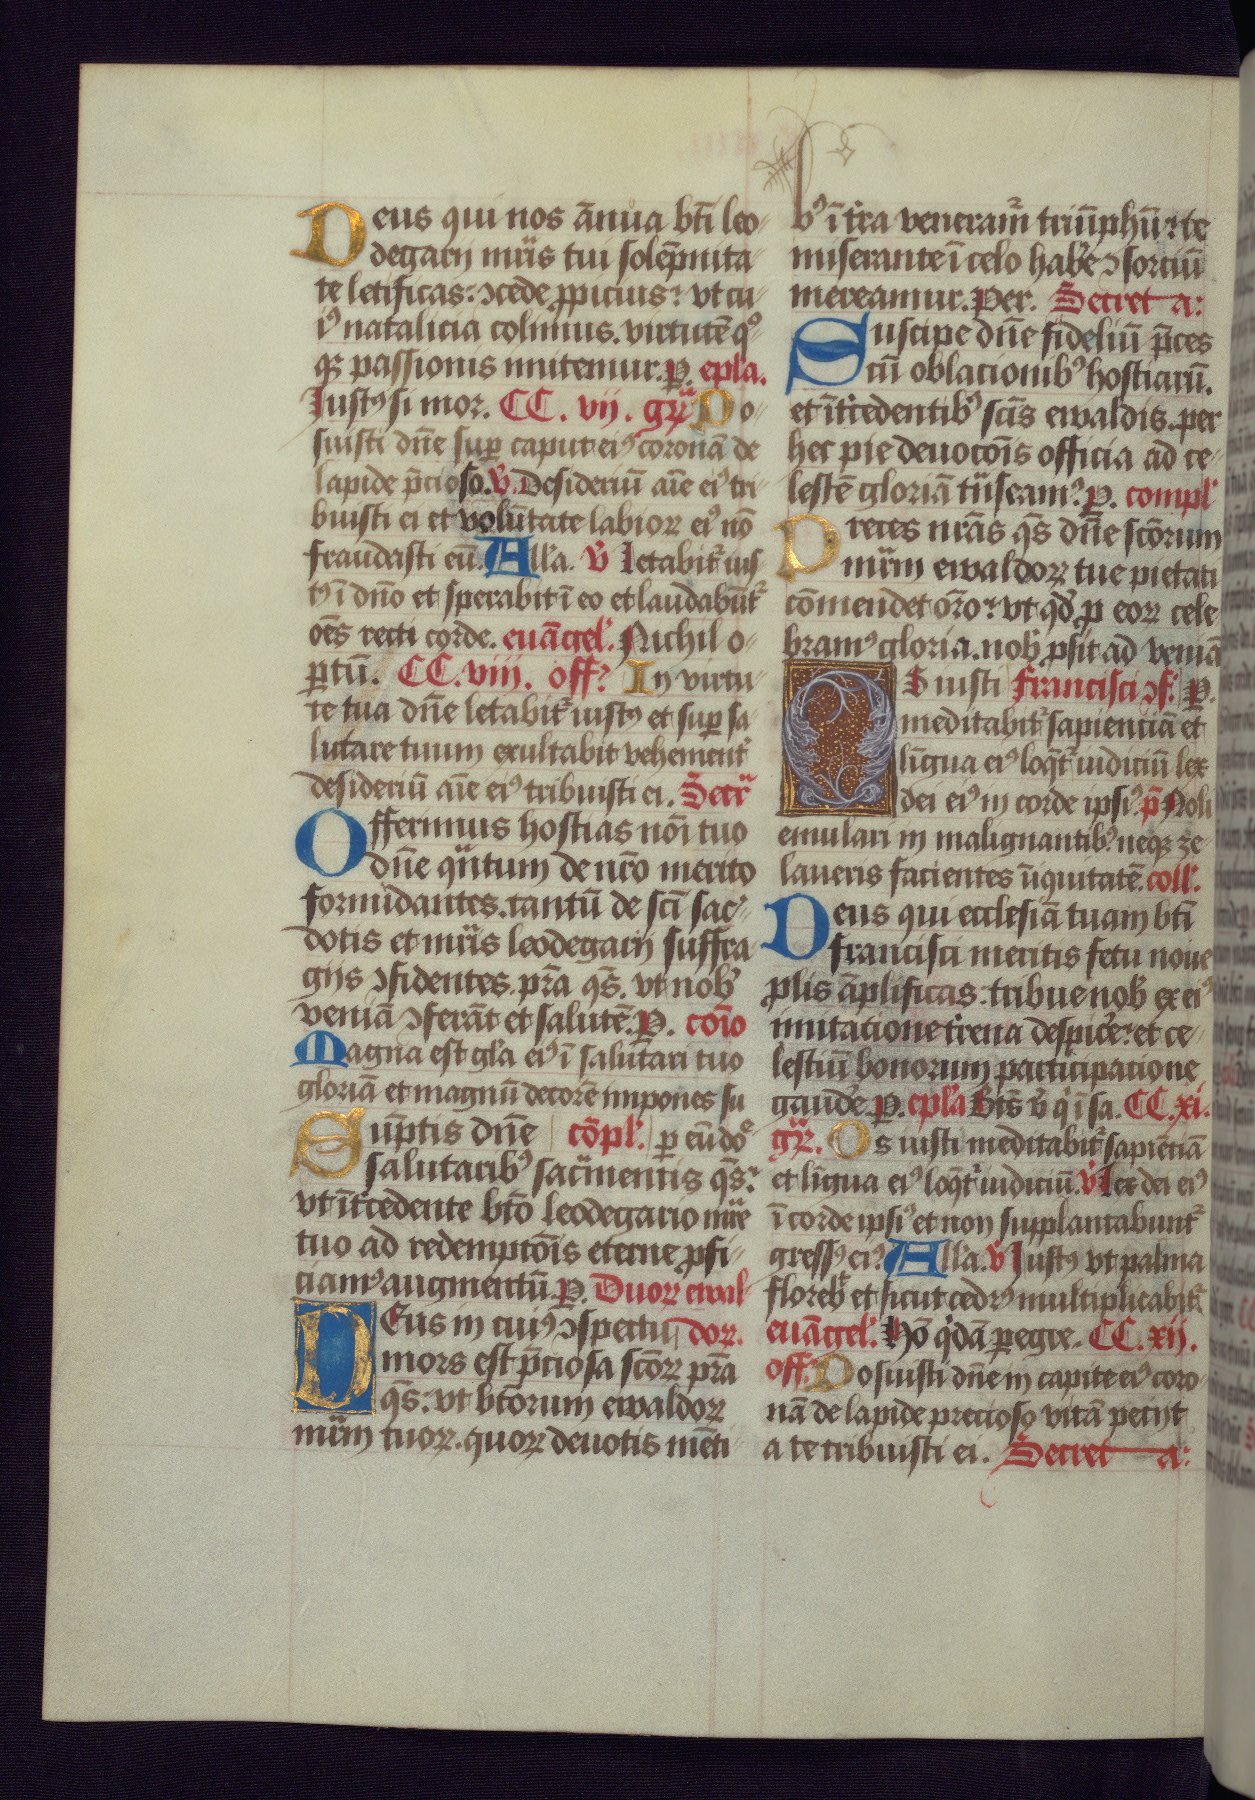 Deus qui nos ānua bt̄i leo-
degarij mr̄is tui solēpnita-
te letificas: ↄcede ꝓpicius: vt cu-
iꝰ natalicia colimus. virtutē qͦ-
qꝫ passionis imitemur. P. epla.
Justꝰ si mor. CC. vij. gr̄ Po-
suisti dn̄e suꝑ caput eiꝰ coronā de
lapide p̄cioso. v̄. Desideriū aīe eiꝰ tri-
buisti ei et volūtate labioꝝ eiꝰ nō
fraudasti eū. All'a. v̄ Letabit̄ ius-
tꝰ ī dn̄o et sperabit ī eo et laudabūt̄
oēs recti corde. euāgel'. Nichil o-
ꝑtū. CC. viij. off? In virtu-
te tua dn̄e letabit̄ iustꝰ et suꝑ sa-
lutare tuum exultabit vehement̄
desideriū aīe eiꝰ tribuisti ei. Secr̄
Offerimus hostias nōi tuo
dn̄e qn̄tum de nr̄o merito
formidantes. tantū de sc̄i sac̄-
dotis et mr̄is leodegarij suffra-
gijs ↄfidentes. pr̄a qs̄. vt nob̄
veniā ↄferāt et salutē. P. cōio
Magna est gl'a eiꝰ ī salutari tuo
gloriā et magnū decorē impones su
Sūptis dn̄e cōpl'. ꝑ eū dōe
salutaribꝰ sac̄mentis qs̄:
vt īt̄cedente bt̄o leodegario mr̄e
tuo ad redemptōis eterne ꝓfi-
ciamꝰ augmentū. P. Duoꝝ ewal-
DEus in cuiꝰ ↄspectu doꝝ.
mors est p̄ciosa sc̄oꝝ pr̄a
qs̄: vt bt̄orum ewaldoꝝ
mr̄m tuoꝝ. quoꝝ deuotis mēti-
bꝰ ī t̄ra veneram̄ triūphū: te
miserante ī celo hab̄e ↄsorciū
mereamur. Per. Secreta:
Suscipe dn̄e fideliū p̄ces
cū oblacionibꝰ hostiarū.
et īt̄cedentibꝰ sc̄is ewaldis. per
hec pie deuocōis officia ad ce-
lestē gloriā t̄nseamꝰ. P. compl'
Preces nr̄as qs̄ dn̄e sc̄orum
mr̄m ewaldoꝝ tue pietati
cōmendet or̄o: vt qd̄ ꝓ eoꝝ cele
bramꝰ gloria. nob̄ ꝓsit ad veniā
OS iusti Francisci ↄf. P.
meditabit̄ sapienciā et
līgua eiꝰ loqt̄ iudiciū lex
dei eiꝰ in corde ipsiꝰ. p̄ Noli
emulari in malignantibꝰ: neqꝫ ze-
laueris facientes īiquitatē. coll.
Deus qui ecclesiā tuam bt̄i
francisci meritis fetu noue
ꝓlis āplificas: tribue nob̄ ex eiꝰ
imitatione t̄rena despic̄e: et ce-
lestiū bonorum participatione
gaud̄e. P. epl'a Bt̄s v̄ q̄ ī sa. CC. xi.
gr̄. Os iusti meditabit̄ sapiētiā
et līgua eiꝰ loqt̄ iudiciū. v̄ Lex dei eiꝰ
ī corde ipsiꝰ et non supplantabunt̄
gressꝰ eiꝰ. All'a. v̄ Justꝰ vt palma
floreb̄ et sicut cedrꝰ multiplicabit̄
euāgel'. Hō q̄dā ꝑegre. CC. xij.
off. Posuisti dn̄e in capite eiꝰ coro-
nā de lapide precioso vitā petijt
a te tribuisti ei. Secreta: